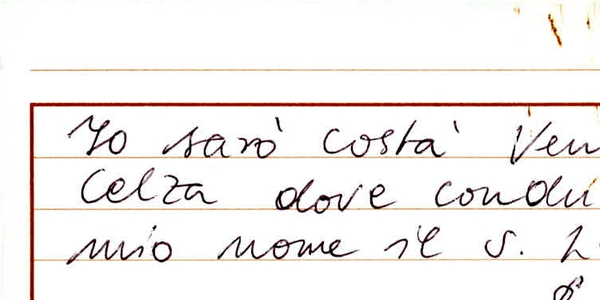 Io sarò costà Ven
Celza dove condu
mio nome il S. L